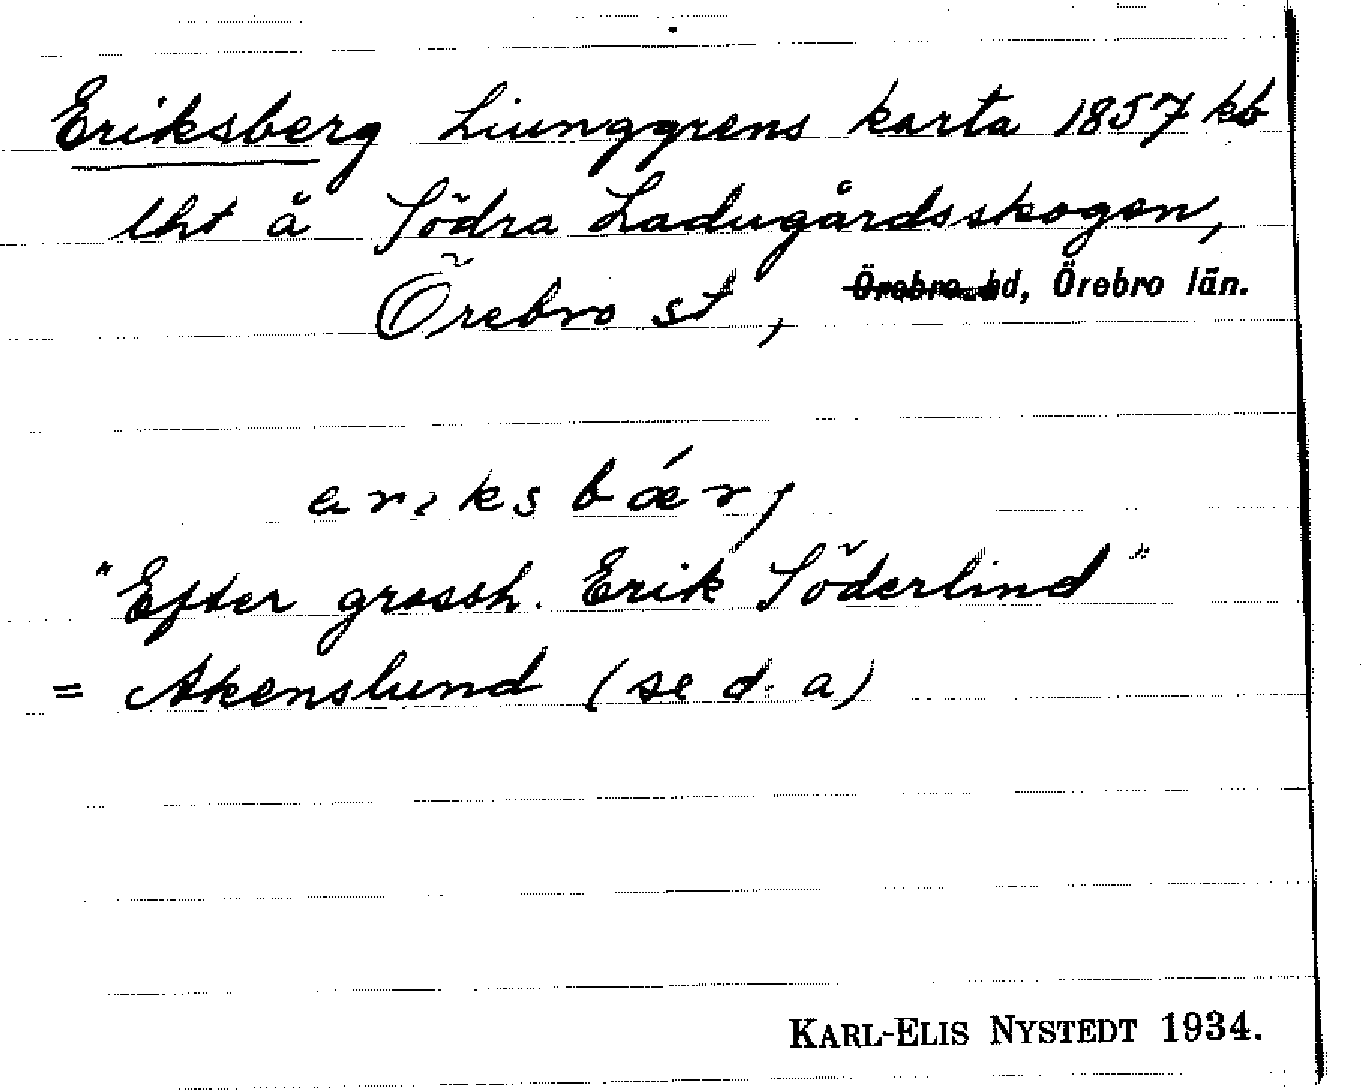 Eriksberg Liunggrens karta 1857 kb
lht å Södra Ladugårdsskogen,
Örebro st, ~~Örebro hd~~, Örebro län.
eriksbærj
"Efter grossh. Erik Söderlind"
= Akenslund (se d. a)
KARL-ELIS NYSTEDT 1934.